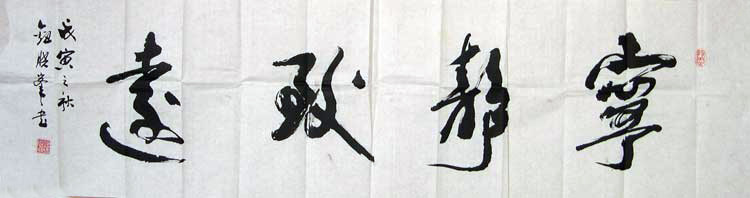 寧靜致遠
戊寅之秋
書